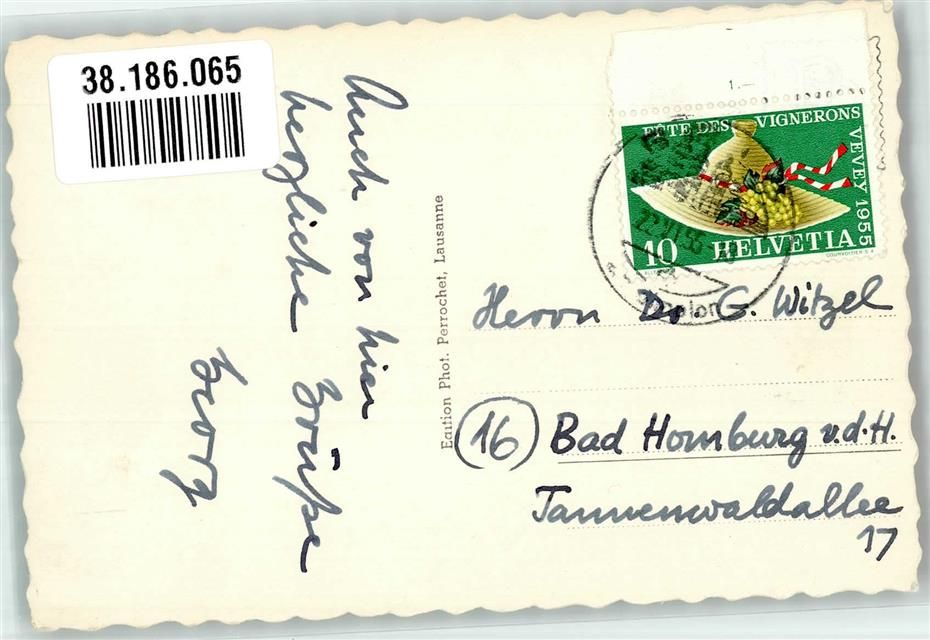 38.186.065
Auch von hier
herzliche Grüße
Georg
Edition Phot. Perrochet, Lausanne
1.—
FÊTE DES VIGNERONS
VEVEY 1955
10 HELVETIA
COURVOISIER S.A.
Herrn Dr. G. Witzel
16 Bad Homburg v.d.H.
Tannenwaldallee
17